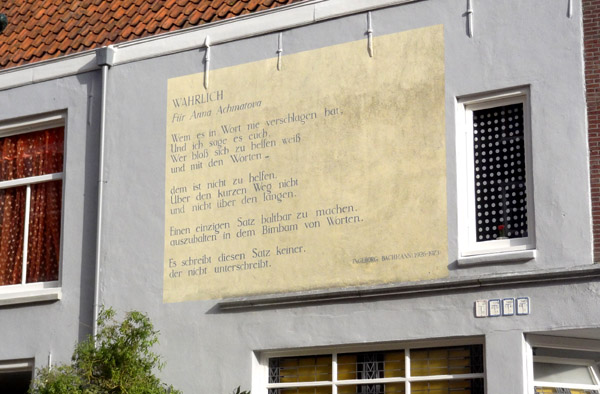 WAHRLICH
Für Anna Achmatova
Wem es in Wort nie verschlagen hat,
Und ich sage es euch,
Wer bloß sich zu helfen weiß
und mit den Worten –
dem ist nicht zu helfen.
Über den kurzen Weg nicht
und nicht über den langen.
Einen einzigen Satz haltbar zu machen,
auszuhalten in dem Bimbam von Worten.
Es schreibt diesen Satz keiner,
der nicht unterschreibt.
INGEBORG BACHMANN (1926-1973)